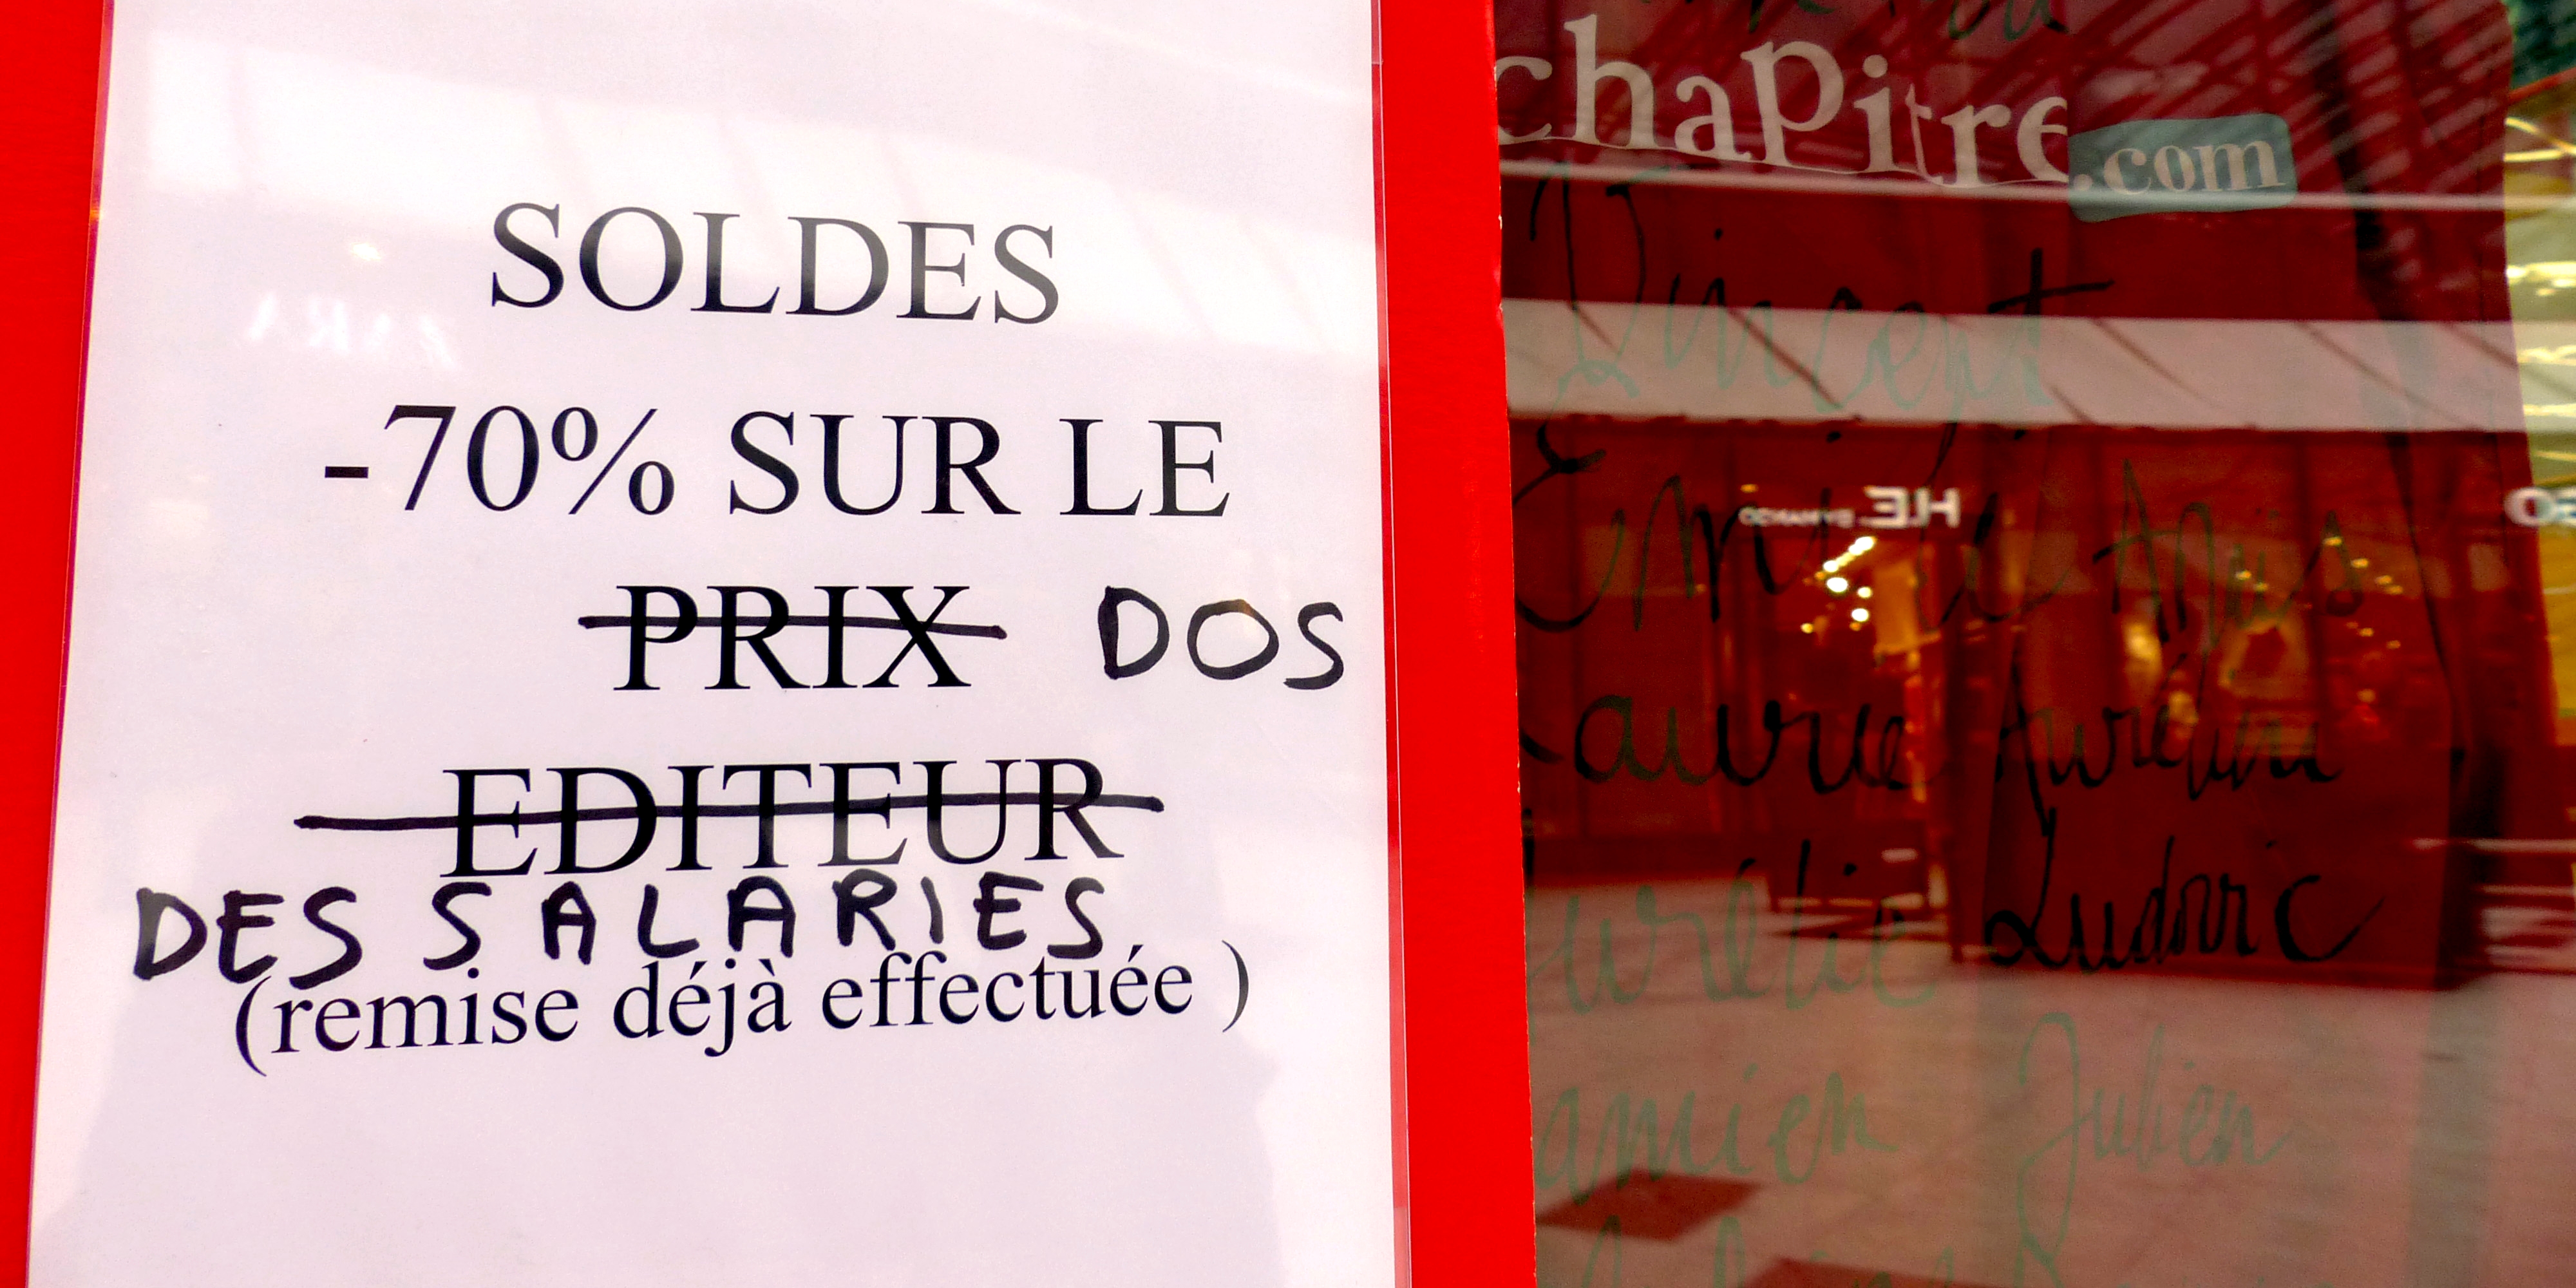 SOLDES
-70% SUR LE
PRIX DOS
EDITEUR
DES SALARIES
(remise déjà effectuée )
chapitre.com
Vincent
Emilie Anaïs
Laurie Aurélien
Aurélie Ludovic
amien Julien
H.E. BY MANGO